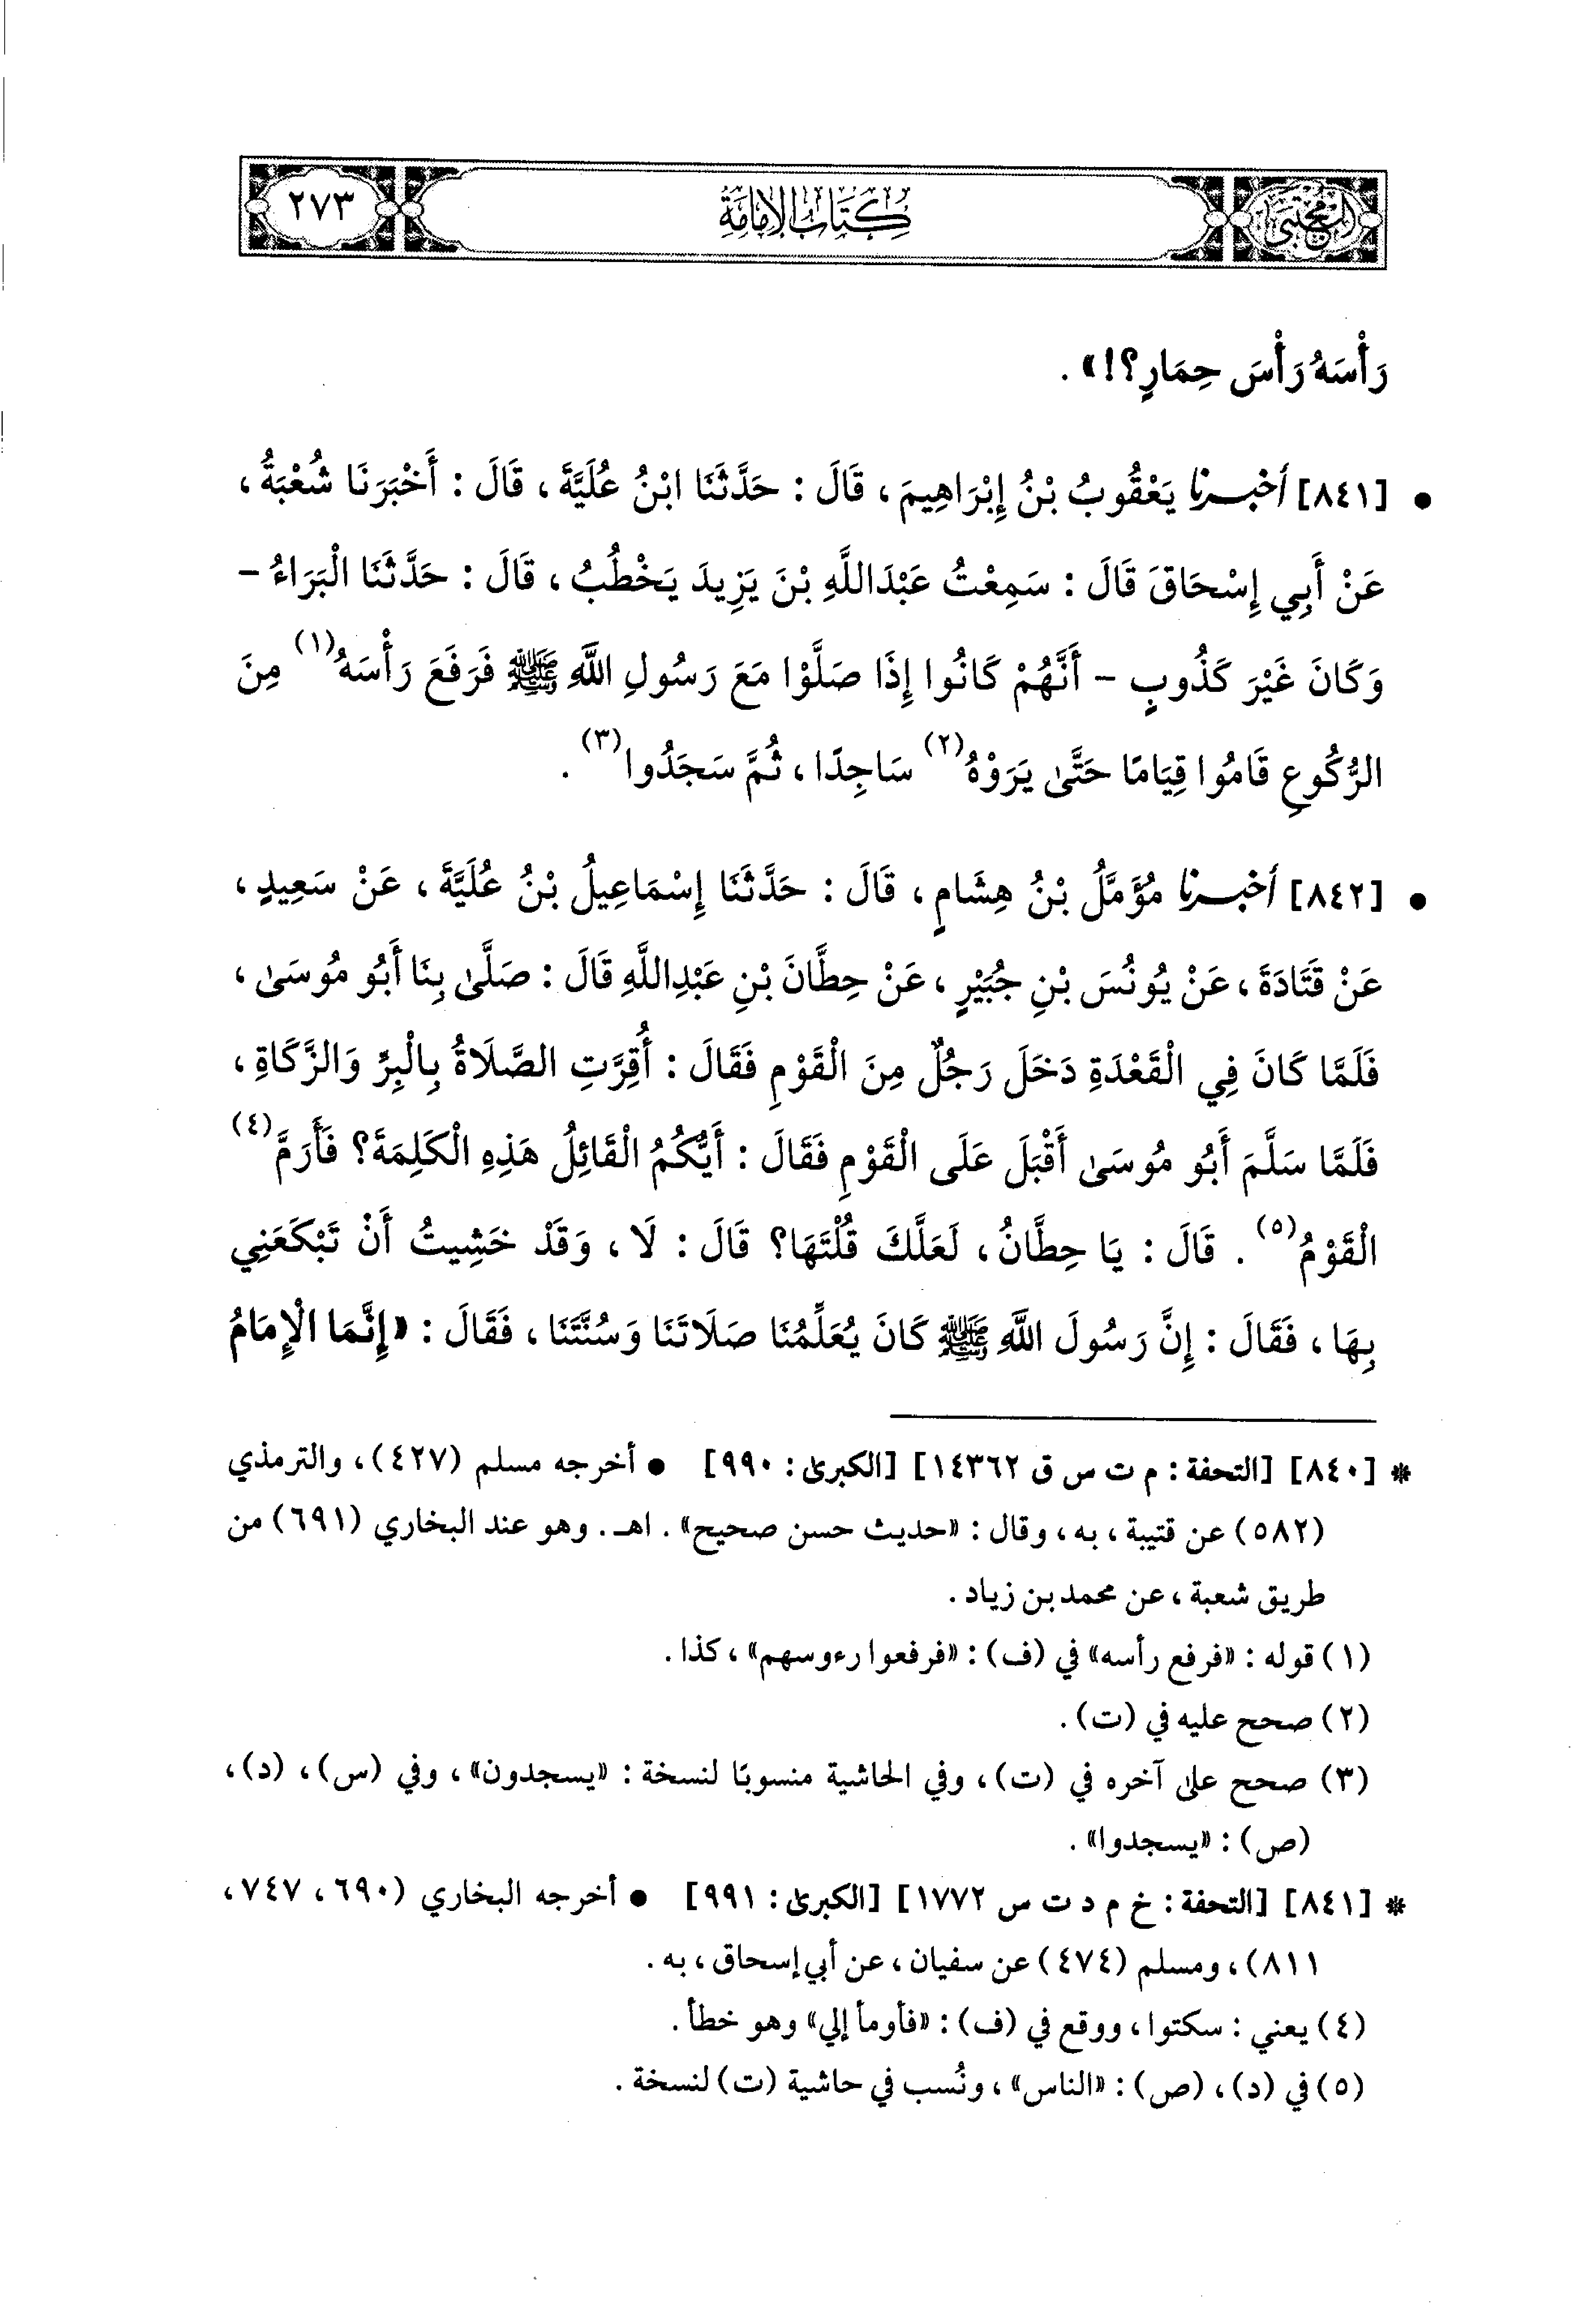 المجتبى
كتاب الإمامة
٢٧٣
رَأْسَهُ رَأْسَ حِمَارٍ؟!» .
• [٨٤١] أخبرنا يَعْقُوبُ بْنُ إِبْرَاهِيمَ ، قَالَ : حَدَّثَنَا ابْنُ عُلَيَّةَ ، قَالَ : أَخْبَرَنَا شُعْبَةُ ،
عَنْ أَبِي إِسْحَاقَ قَالَ : سَمِعْتُ عَبْدَاللَّهِ بْنَ يَزِيدَ يَخْطُبُ ، قَالَ : حَدَّثَنَا الْبَرَاءُ -
وَكَانَ غَيْرَ كَذُوبٍ - أَنَّهُمْ كَانُوا إِذَا صَلَّوْا مَعَ رَسُولِ اللَّهِ ﷺ فَرَفَعَ رَأْسَهُ(١) مِنَ
الرُّكُوعِ قَامُوا قِيَامًا حَتَّىٰ يَرَوْهُ(٢) سَاجِدًا ، ثُمَّ سَجَدُوا(٣) .
• [٨٤٢] أخبرنا مُؤَمَّلُ بْنُ هِشَامٍ ، قَالَ : حَدَّثَنَا إِسْمَاعِيلُ بْنُ عُلَيَّةَ ، عَنْ سَعِيدٍ ،
عَنْ قَتَادَةَ ، عَنْ يُونُسَ بْنِ جُبَيْرٍ ، عَنْ حِطَّانَ بْنِ عَبْدِاللَّهِ قَالَ : صَلَّىٰ بِنَا أَبُو مُوسَىٰ ،
فَلَمَّا كَانَ فِي الْقَعْدَةِ دَخَلَ رَجُلٌ مِنَ الْقَوْمِ فَقَالَ : أُقِرَّتِ الصَّلَاةُ بِالْبِرِّ وَالزَّكَاةِ ،
فَلَمَّا سَلَّمَ أَبُو مُوسَىٰ أَقْبَلَ عَلَى الْقَوْمِ فَقَالَ : أَيُّكُمُ الْقَائِلُ هَذِهِ الْكَلِمَةَ؟ فَأَرَمَّ(٤)
الْقَوْمُ(٥) . قَالَ : يَا حِطَّانُ ، لَعَلَّكَ قُلْتَهَا؟ قَالَ : لَا ، وَقَدْ خَشِيتُ أَنْ تَبْكَعَنِي
بِهَا ، فَقَالَ : إِنَّ رَسُولَ اللَّهِ ﷺ كَانَ يُعَلِّمُنَا صَلَاتَنَا وَسُنَّتَنَا ، فَقَالَ : «إِنَّمَا الْإِمَامُ
* [٨٤٠] [التحفة : م ت س ق ١٤٣٦٢] [الكبرىٰ : ٩٩٠] • أخرجه مسلم (٤٢٧) ، والترمذي
(٥٨٢) عن قتيبة ، به ، وقال : «حديث حسن صحيح» . اهـ . وهو عند البخاري (٦٩١) من
طريق شعبة ، عن محمد بن زياد .
(١) قوله : «فرفع رأسه» في (ف) : «فرفعوا رءوسهم» ، كذا .
(٢) صحح عليه في (ت) .
(٣) صحح علىٰ آخره في (ت) ، وفي الحاشية منسوبًا لنسخة : «يسجدون» ، وفي (س) ، (د) ،
(ص) : «يسجدوا» .
* [٨٤١] [التحفة : خ م د ت س ١٧٧٢] [الكبرىٰ : ٩٩١] • أخرجه البخاري (٦٩٠ ، ٧٤٧ ،
٨١١) ، ومسلم (٤٧٤) عن سفيان ، عن أبي إسحاق ، به .
(٤) يعني : سكتوا ، ووقع في (ف) : «فأومأ إلي» وهو خطأ .
(٥) في (د) ، (ص) : «الناس» ، ونُسب في حاشية (ت) لنسخة .